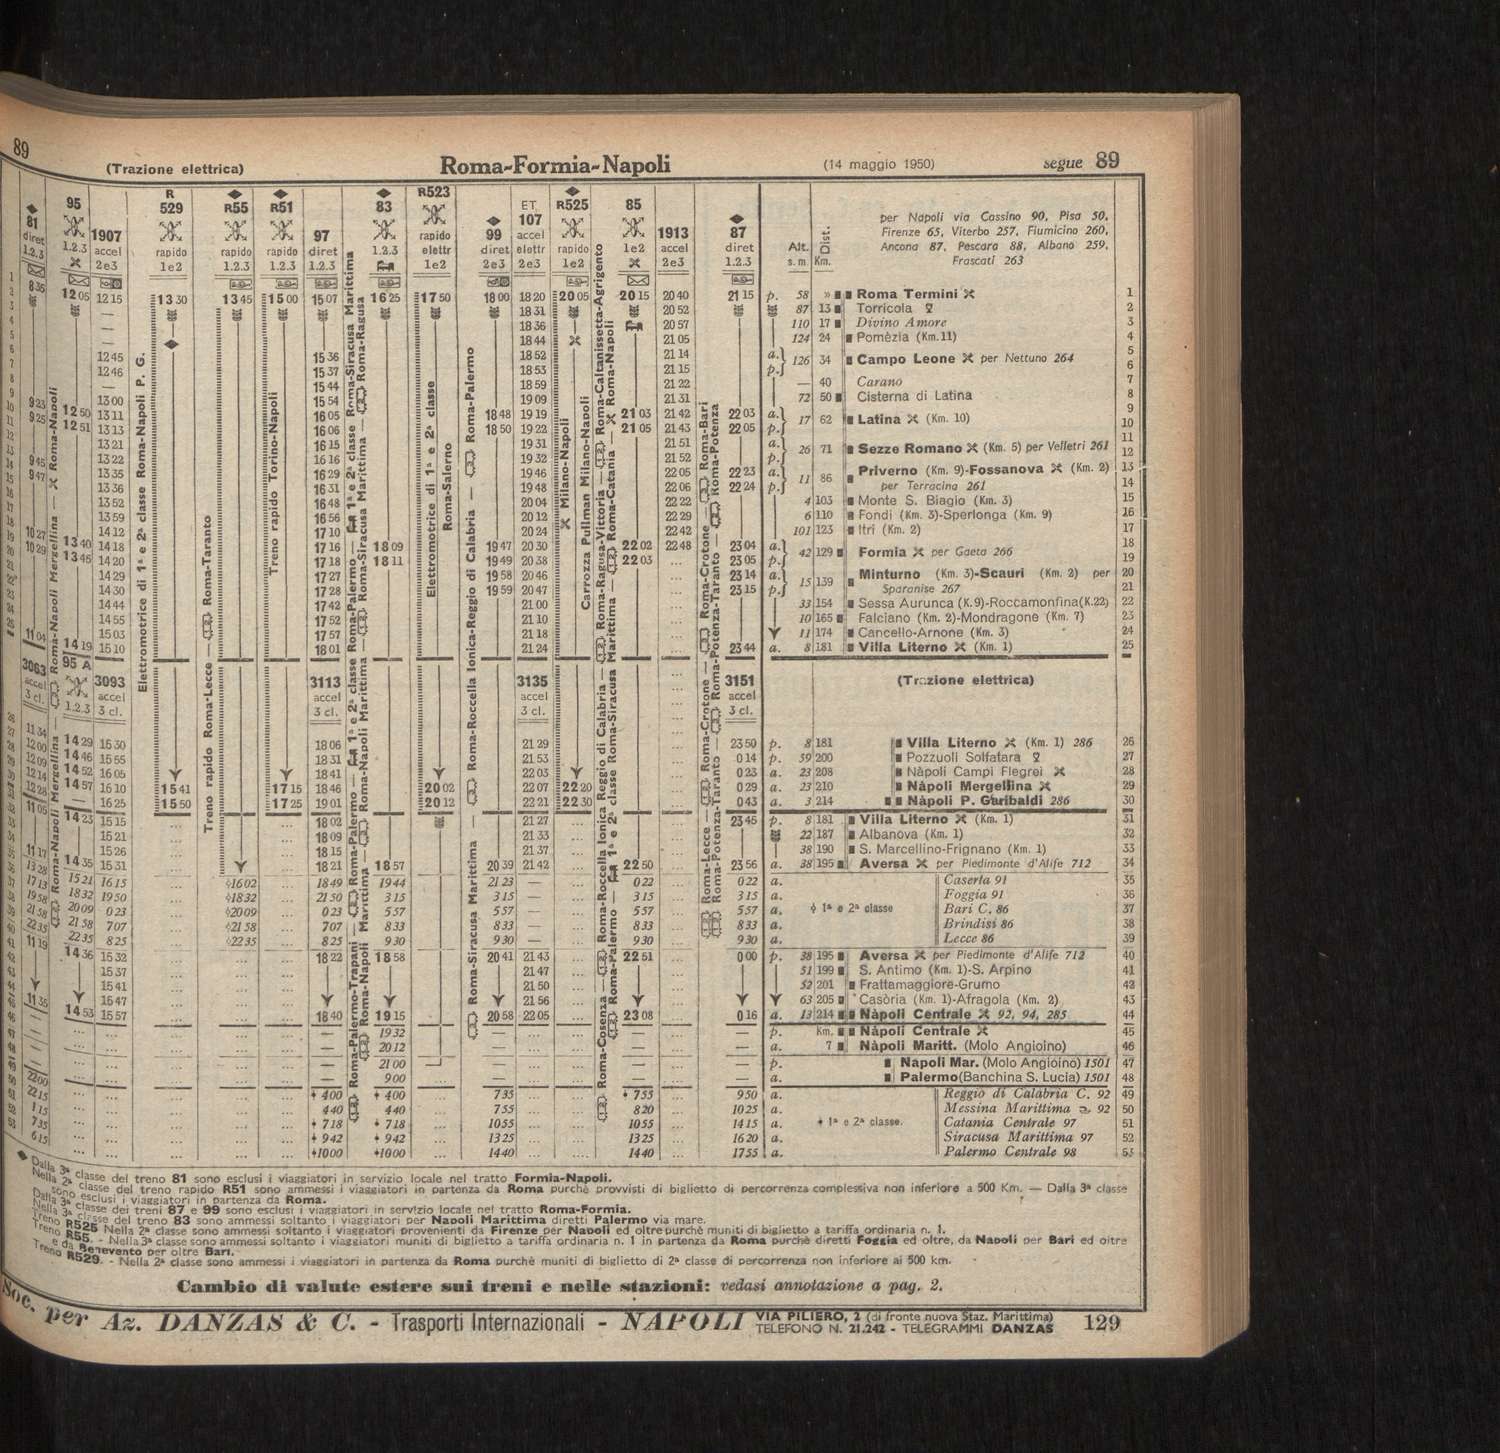 89
(Trazione elettrica) Roma-Formia-Napoli (14 maggio 1950) segue 89
81 95 1907 R 529 R55 R51 97 83 R523 99 ET 107 R525 85 1913 87
diret 1.2.3 1.2.3 accel 2e3 rapido 1e2 rapido 1.2.3 rapido 1.2.3 diret 1.2.3 1.2.3 rapido elettr 1e2 diret 2e3 accel elettr 2e3 rapido 1e2 1e2 accel 2e3 diret 1.2.3 Alt. s. m. Dist. Km.
per Napoli via Cassino 90, Pisa 50,
Firenze 65, Viterbo 257, Fiumicino 260,
Ancona 87, Pescara 88, Albano 259,
Frascati 263
8 35 12 05 12 15 13 30 13 45 15 00 15 07 16 25 17 50 18 00 18 20 20 05 20 15 20 40 21 15 p. 58 » Roma Termini 1
— 18 31 20 52 87 13 Torricola 2
— 18 36 20 57 110 17 Divino Amore 3
— 18 44 21 05 124 24 Pomèzia (Km. 11) 4
12 45 15 36 18 52 21 14 a. 5
126 34 Campo Leone per Nettuno 264
12 46 15 37 18 53 21 15 p. 6
— 15 44 18 59 21 22 — 40 Carano 7
9 23 13 00 15 54 19 09 21 31 72 50 Cisterna di Latina 8
9 25 12 50 13 11 16 05 18 48 19 19 21 03 21 42 22 03 a. 9
17 62 Latina (Km. 10)
12 51 13 13 16 06 18 50 19 22 21 05 21 43 22 05 p. 10
13 21 16 15 19 31 21 51 a. 11
26 71 Sezze Romano (Km. 5) per Velletri 261
9 45 13 22 16 16 19 32 21 52 p. 12
9 47 13 35 16 29 19 46 22 05 22 23 a. 13
11 86 Priverno (Km. 9)-Fossanova (Km. 2)
per Terracina 261
13 36 16 31 19 48 22 06 22 24 p. 14
13 52 16 48 20 04 22 22 4 103 Monte S. Biagio (Km. 3) 15
13 59 16 56 20 12 22 29 6 110 Fondi (Km. 3)-Sperlonga (Km. 9) 16
14 12 17 10 20 24 22 42 101 123 Itri (Km. 2) 17
10 27 13 40 14 18 17 16 18 09 19 47 20 30 22 02 22 48 23 04 a. 18
42 129 Formia per Gaeta 266
10 29 13 46 14 20 17 18 18 11 19 49 20 38 22 03 ... 23 05 p. 19
14 29 17 27 19 58 20 46 ... 23 14 a. 20
15 139 Minturno (Km. 3)-Scauri (Km. 2) per
Sparanise 267
14 30 17 28 19 59 20 47 ... 23 15 p. 21
14 44 17 42 21 00 ... 33 154 Sessa Aurunca (K. 9)-Roccamonfina (K. 22) 22
14 55 17 52 21 10 ... 10 165 Falciano (Km. 2)-Mondragone (Km. 7) 23
15 03 17 57 21 18 ... 11 174 Cancello-Arnone (Km. 3) 24
11 04 14 19 15 10 18 01 21 24 ... 23 44 a. 8 181 Villa Literno (Km. 1) 25
3063 95 A 3093 3113 3135 3151 (Trazione elettrica)
accel 3 cl. 1.2.3 accel 3 cl. accel 3 cl. accel 3 cl. accel 3 cl.
11 34 14 29 15 30 18 06 21 29 ... 23 50 p. 8 181 Villa Literno (Km. 1) 286 26
12 00 14 46 15 55 18 31 21 53 ... 0 14 p. 59 200 Pozzuoli Solfatara 27
12 09 14 52 16 05 18 41 22 03 ... 0 23 a. 23 208 Nàpoli Campi Flegrei 28
12 14 14 57 16 10 15 41 17 15 18 46 20 02 22 07 22 20 ... 0 29 a. 23 210 Nàpoli Mergellina 29
12 28 — 16 25 15 50 17 25 19 01 20 12 22 21 22 30 ... 0 43 a. 3 214 Nàpoli P. Garibaldi 286 30
11 05 14 23 15 15 ... ... 18 02 21 27 ... ... 23 45 p. 8 181 Villa Literno (Km. 1) 31
15 21 ... ... 18 09 21 33 ... ... 22 187 Albanova (Km. 1) 32
15 26 ... ... 18 15 21 37 ... ... 38 190 S. Marcellino-Frignano (Km. 1) 33
11 17 14 35 15 31 ... ... 18 21 18 57 20 39 21 42 ... 22 50 ... 23 56 a. 38 195 Aversa per Piedimonte d'Alife 712 34
13 28 15 21 16 15 ... 16 02 ... 18 49 19 44 21 23 — ... 0 22 ... 0 22 a. Caserta 91 35
17 13 18 32 19 50 ... 18 32 ... 21 50 3 15 3 15 — ... 3 15 ... 3 15 a. Foggia 91 36
19 58 20 09 0 23 ... 20 09 ... 0 23 5 57 5 57 — ... 5 57 ... 5 57 a. 1ª e 2ª classe Bari C. 86 37
21 58 21 58 7 07 ... 21 58 ... 7 07 8 33 8 33 — ... 8 33 ... 8 33 a. Brindisi 86 38
22 35 22 35 8 25 ... 22 35 ... 8 25 9 30 9 30 — ... 9 30 ... 9 30 a. Lecce 86 39
11 19 14 36 15 32 ... ... ... 18 22 18 58 20 41 21 43 ... 22 51 ... 0 00 p. 38 195 Aversa per Piedimonte d'Alife 712 40
15 37 ... ... ... 21 47 ... ... 51 199 S. Antimo (Km. 1)-S. Arpino 41
15 41 ... ... ... 21 50 ... ... 52 201 Frattamaggiore-Grumo 42
15 47 ... ... ... 21 56 ... ... 63 205 Casòria (Km. 1)-Afragola (Km. 2) 43
11 35 14 53 15 57 ... ... ... 18 40 19 15 20 58 22 05 ... 23 08 ... 0 16 a. 13 214 Nàpoli Centrale 92, 94, 285 44
— — ... ... ... ... — 19 32 — ... ... — ... — p. Km. Nàpoli Centrale 45
— — ... ... ... ... — 20 12 — ... ... — ... — a. 7 Nàpoli Maritt. (Molo Angioino) 46
— — ... ... ... ... — 21 00 — ... ... — ... — p. Napoli Mar. (Molo Angioino) 1501 47
— — ... ... ... ... — 9 00 — ... ... — ... — a. Palermo (Banchina S. Lucia) 1501 48
22 00 ... ... ... ... ... 4 00 4 00 7 35 ... ... 7 55 ... 9 50 a. Reggio di Calàbria C. 92 49
22 15 ... ... ... ... ... 4 40 4 40 7 55 ... ... 8 20 ... 10 25 a. Messina Marittima 92 50
1 15 ... ... ... ... ... 7 18 7 18 10 55 ... ... 10 55 ... 14 15 a. 1ª e 2ª classe. Catania Centrale 97 51
7 35 ... ... ... ... ... 9 42 9 42 13 25 ... ... 13 25 ... 16 20 a. Siracusa Marittima 97 52
6 15 ... ... ... ... ... 10 00 10 00 14 40 ... ... 14 40 ... 17 55 a. Palermo Centrale 98 53
Roma-Napoli Mergellina — Roma-Napoli
Elettromotrice di 1ª e 2ª classe Roma-Napoli P. G.
Treno rapido Roma-Lecce — Roma-Taranto
Treno rapido Torino-Napoli
Roma-Palermo-Trapani — Roma-Palermo — 1ª e 2ª classe Roma-Palermo — 1ª e 2ª classe Roma-Siracusa Marittima
Roma-Napoli Marittima — Roma-Napoli Marittima — Roma-Siracusa Marittima — Roma-Ragusa
Elettromotrice di 1ª e 2ª classe
Roma-Salerno
Roma-Siracusa Marittima — Roma-Roccella Ionica-Reggio di Calabria — Roma-Palermo
Carrozza Pullman Milano-Napoli
Milano-Napoli
Roma-Cosenza — Roma-Roccella Ionica Reggio di Calabria — Roma-Ragusa-Vittoria — Roma-Caltanissetta-Agrigento
Roma-Palermo — 1ª e 2ª classe Roma-Siracusa Marittima — Roma-Catania — Roma-Napoli
Roma-Lecce — Roma-Crotone — Roma-Crotone — Roma-Bari
Roma-Potenza-Taranto — Roma-Potenza-Taranto — Roma-Potenza
Dalla 3ª classe del treno 81 sono esclusi i viaggiatori in servizio locale nel tratto Formia-Napoli.
Nella 2ª classe del treno rapido R51 sono ammessi i viaggiatori in partenza da Roma purchè provvisti di biglietto di percorrenza complessiva non inferiore a 500 Km. — Dalla 3ª classe
sono esclusi i viaggiatori in partenza da Roma.
Dalla 3ª classe dei treni 87 e 99 sono esclusi i viaggiatori in servizio locale nel tratto Roma-Formia.
Nella 3ª classe del treno 83 sono ammessi soltanto i viaggiatori per Napoli Marittima diretti Palermo via mare.
Treno R525 Nella 2ª classe sono ammessi soltanto i viaggiatori provenienti da Firenze per Napoli ed oltre purchè muniti di biglietto a tariffa ordinaria n. 1.
Treno R55. - Nella 3ª classe sono ammessi soltanto i viaggiatori muniti di biglietto a tariffa ordinaria n. 1 in partenza da Roma purchè diretti Foggia ed oltre, da Napoli per Bari ed oltre
e da Benevento per oltre Bari.
Treno R529. - Nella 2ª classe sono ammessi i viaggiatori in partenza da Roma purchè muniti di biglietto di 2ª classe di percorrenza non inferiore ai 500 km.
Cambio di valute estere sui treni e nelle stazioni: vedasi annotazione a pag. 2.
Soc. per Az. DANZAS & C. - Trasporti Internazionali - NAPOLI VIA PILIERO, 2 (di fronte nuova Staz. Marittima)
TELEFONO N. 21.242 - TELEGRAMMI DANZAS 129